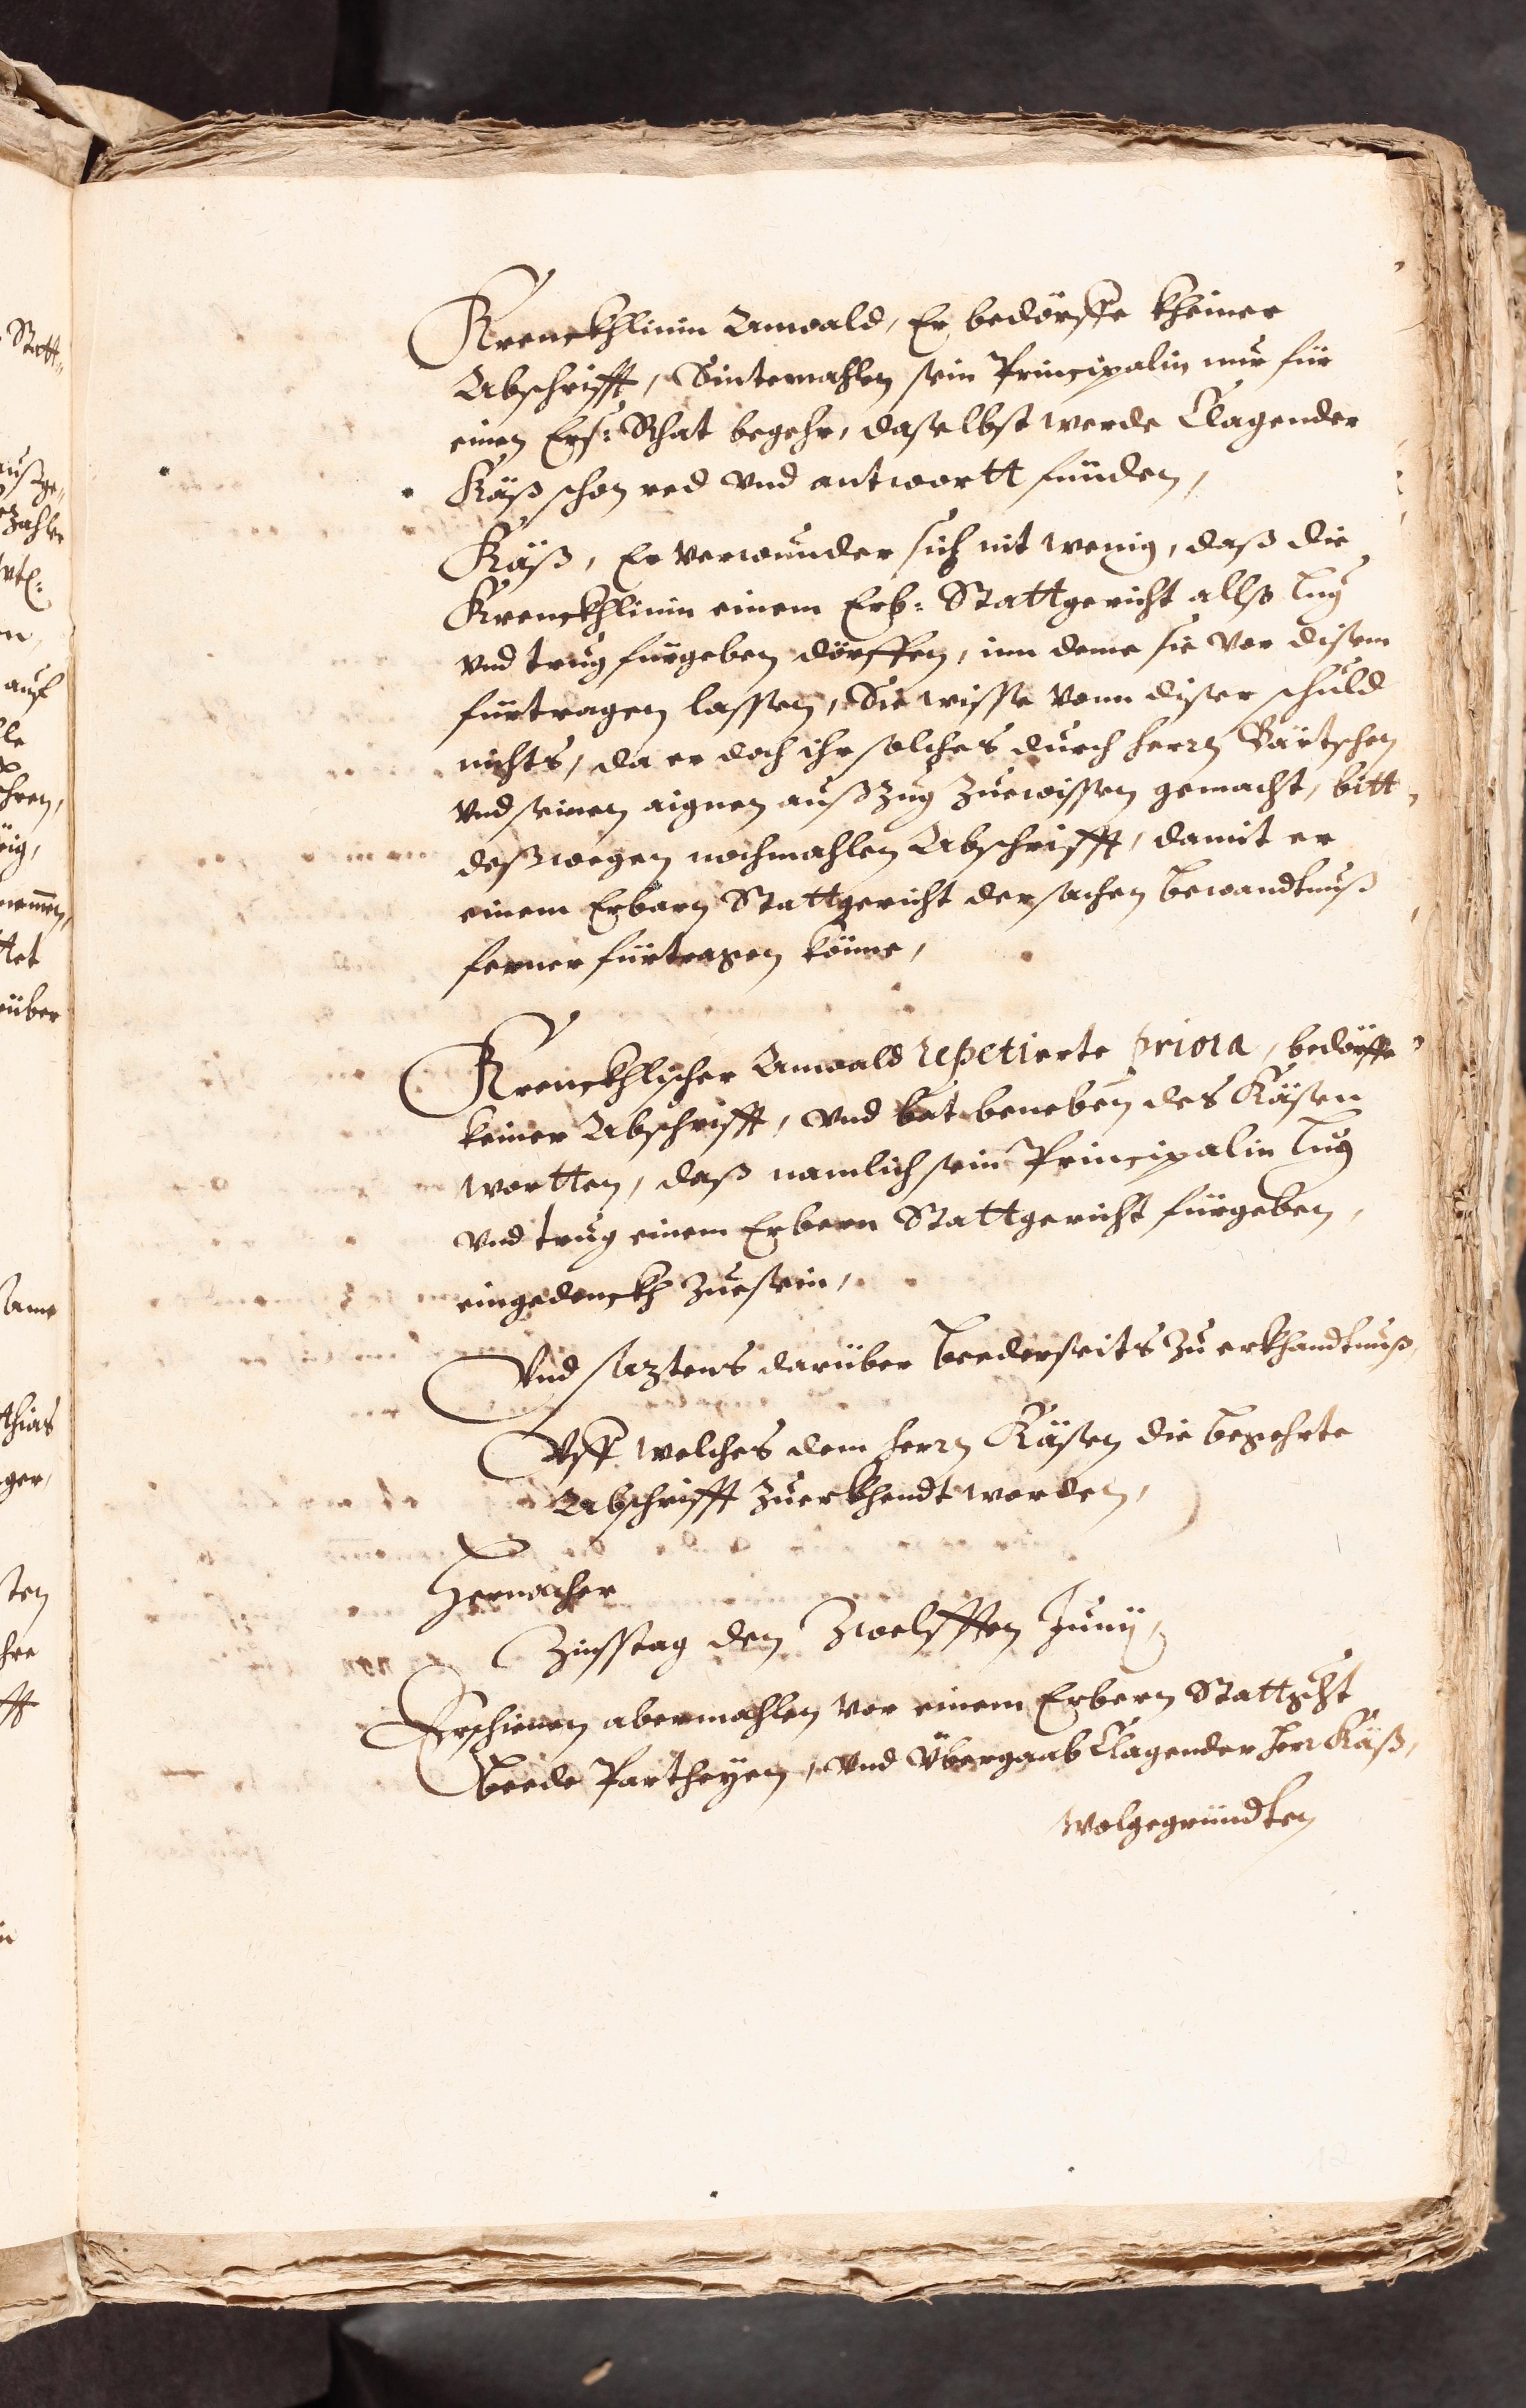 Krenckhlinin Anwald, Er bedörffe kheiner
Abschrifft, Sintemahlen sein Principalin nur für
einen Ers: Rhat begehr, daselbst werde Clagender
Käß schon red vnd antwortt finden,
Käß, Er verwunder sich nit wenig, daß die
Krenckhlinin einem Erb: Stattgericht allß Lug
vnd trug fürgeben dörffen, inn deme sie vor disem
fürtragen lassen, Sie wisse vonn diser schuld
nichts, da er doch ihr solches durch herrn Bärtschen
vnd seinen aignen außzug Zuewissen gemacht, bitt
deßwegen nochmahlen Abschrifft, damit er
einem Erbarn Stattgericht der sachen bewandtnuß
ferner fürtragen könne,
Krenckhlischer Anwald repetierte priora, bedörffe
keiner Abschrifft, vnd bat beneben des Käßen
wortten, daß namlich sein Principalin Lug
vnd trug einem Erbern Stattgericht fürgeben,
eingedenckh Zuesein,
Vnd saztens darüber beederseits Zu erkhandtnuß,
Vff welches dem herrn Käßen die begehrte
Abschrifft Zuerkhendt worden,
Hernacher
Zinsstag den Zwelfften Junij,
Erschienen abermahlen vor einem Erbern Stattgcht
Beede Partheyen, vnd Übergaab Clagender herr Käß,
wolgegründten